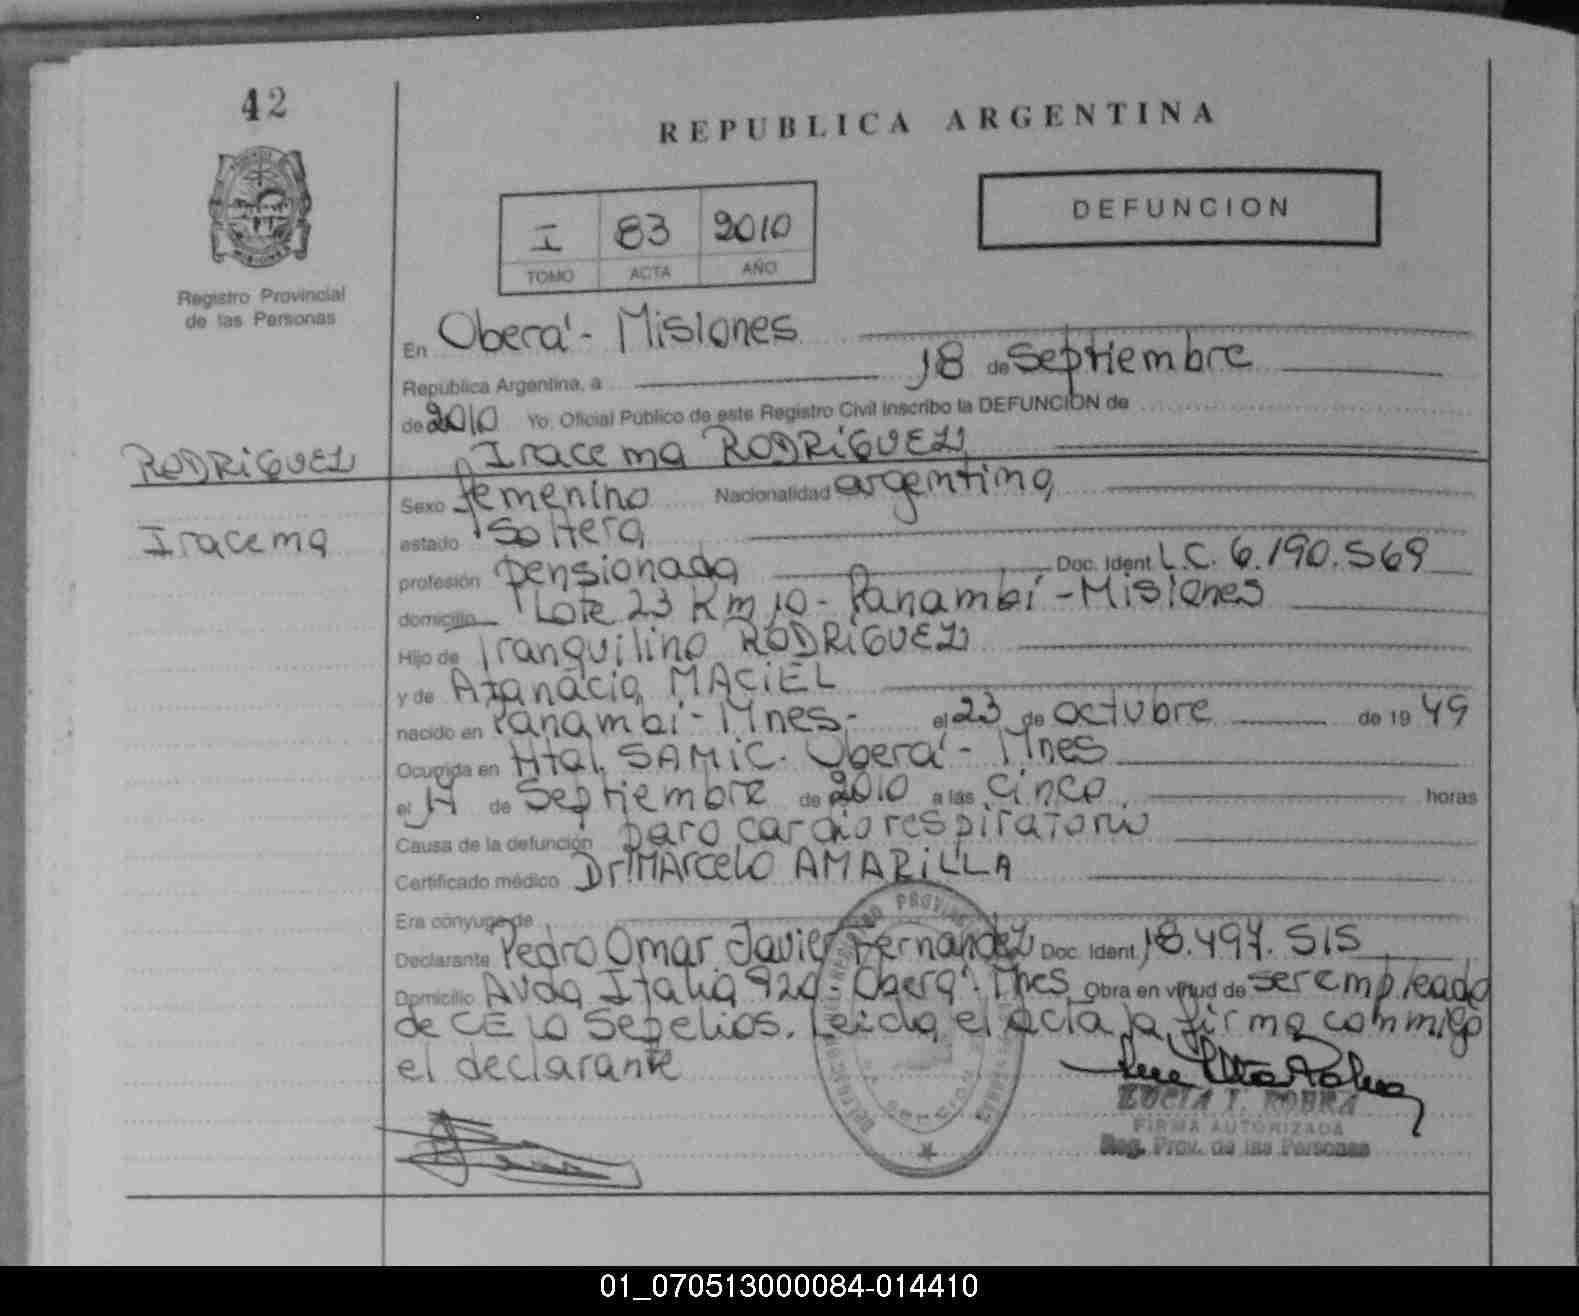 42
REPUBLICA ARGENTINA
DEFUNCION
I 83 2010
TOMO ACTA AÑO
Registro Provincial
de las Personas
En Oberá - Misiones
República Argentina, a 18 de Septiembre
de 2010 Yo, Oficial Público de este Registro Civil inscribo la DEFUNCION de
RODRiGUEZ Iracema RODRiGUEZ
Sexo femenino Nacionalidad argentina
Iracema estado soltera
profesión pensionada Doc. Ident L.C. 6.190.569
domicilio Lote 23 Km 10 - Panambí - Misiones
Hijo de Tranquilino RODRiGUEZ
y de Atanacia MACiEL
nacido en Panambí - Mnes - el 23 de octubre de 19 49
Ocurrida en Htal. SAMiC. Oberá - Mnes
el de Septiembre de 2010 a las cinco horas
Causa de la defunción paro cardiorespiratorio
Certificado médico Dr. MArcelo AMARiLLA
Era cónyuge de
Declarante Pedro Omar Javier Fernandez Doc. Ident. 18.497.515
Domicilio Avda Italia 920 - Oberá - Mnes Obra en virtud de ser empleado
de CELO Sepelios. Leida el acta la firma conmigo
el declarante
LUCIA I. ROBRA
FIRMA AUTORIZADA
Reg. Prov. de las Personas
01_070513000084-014410